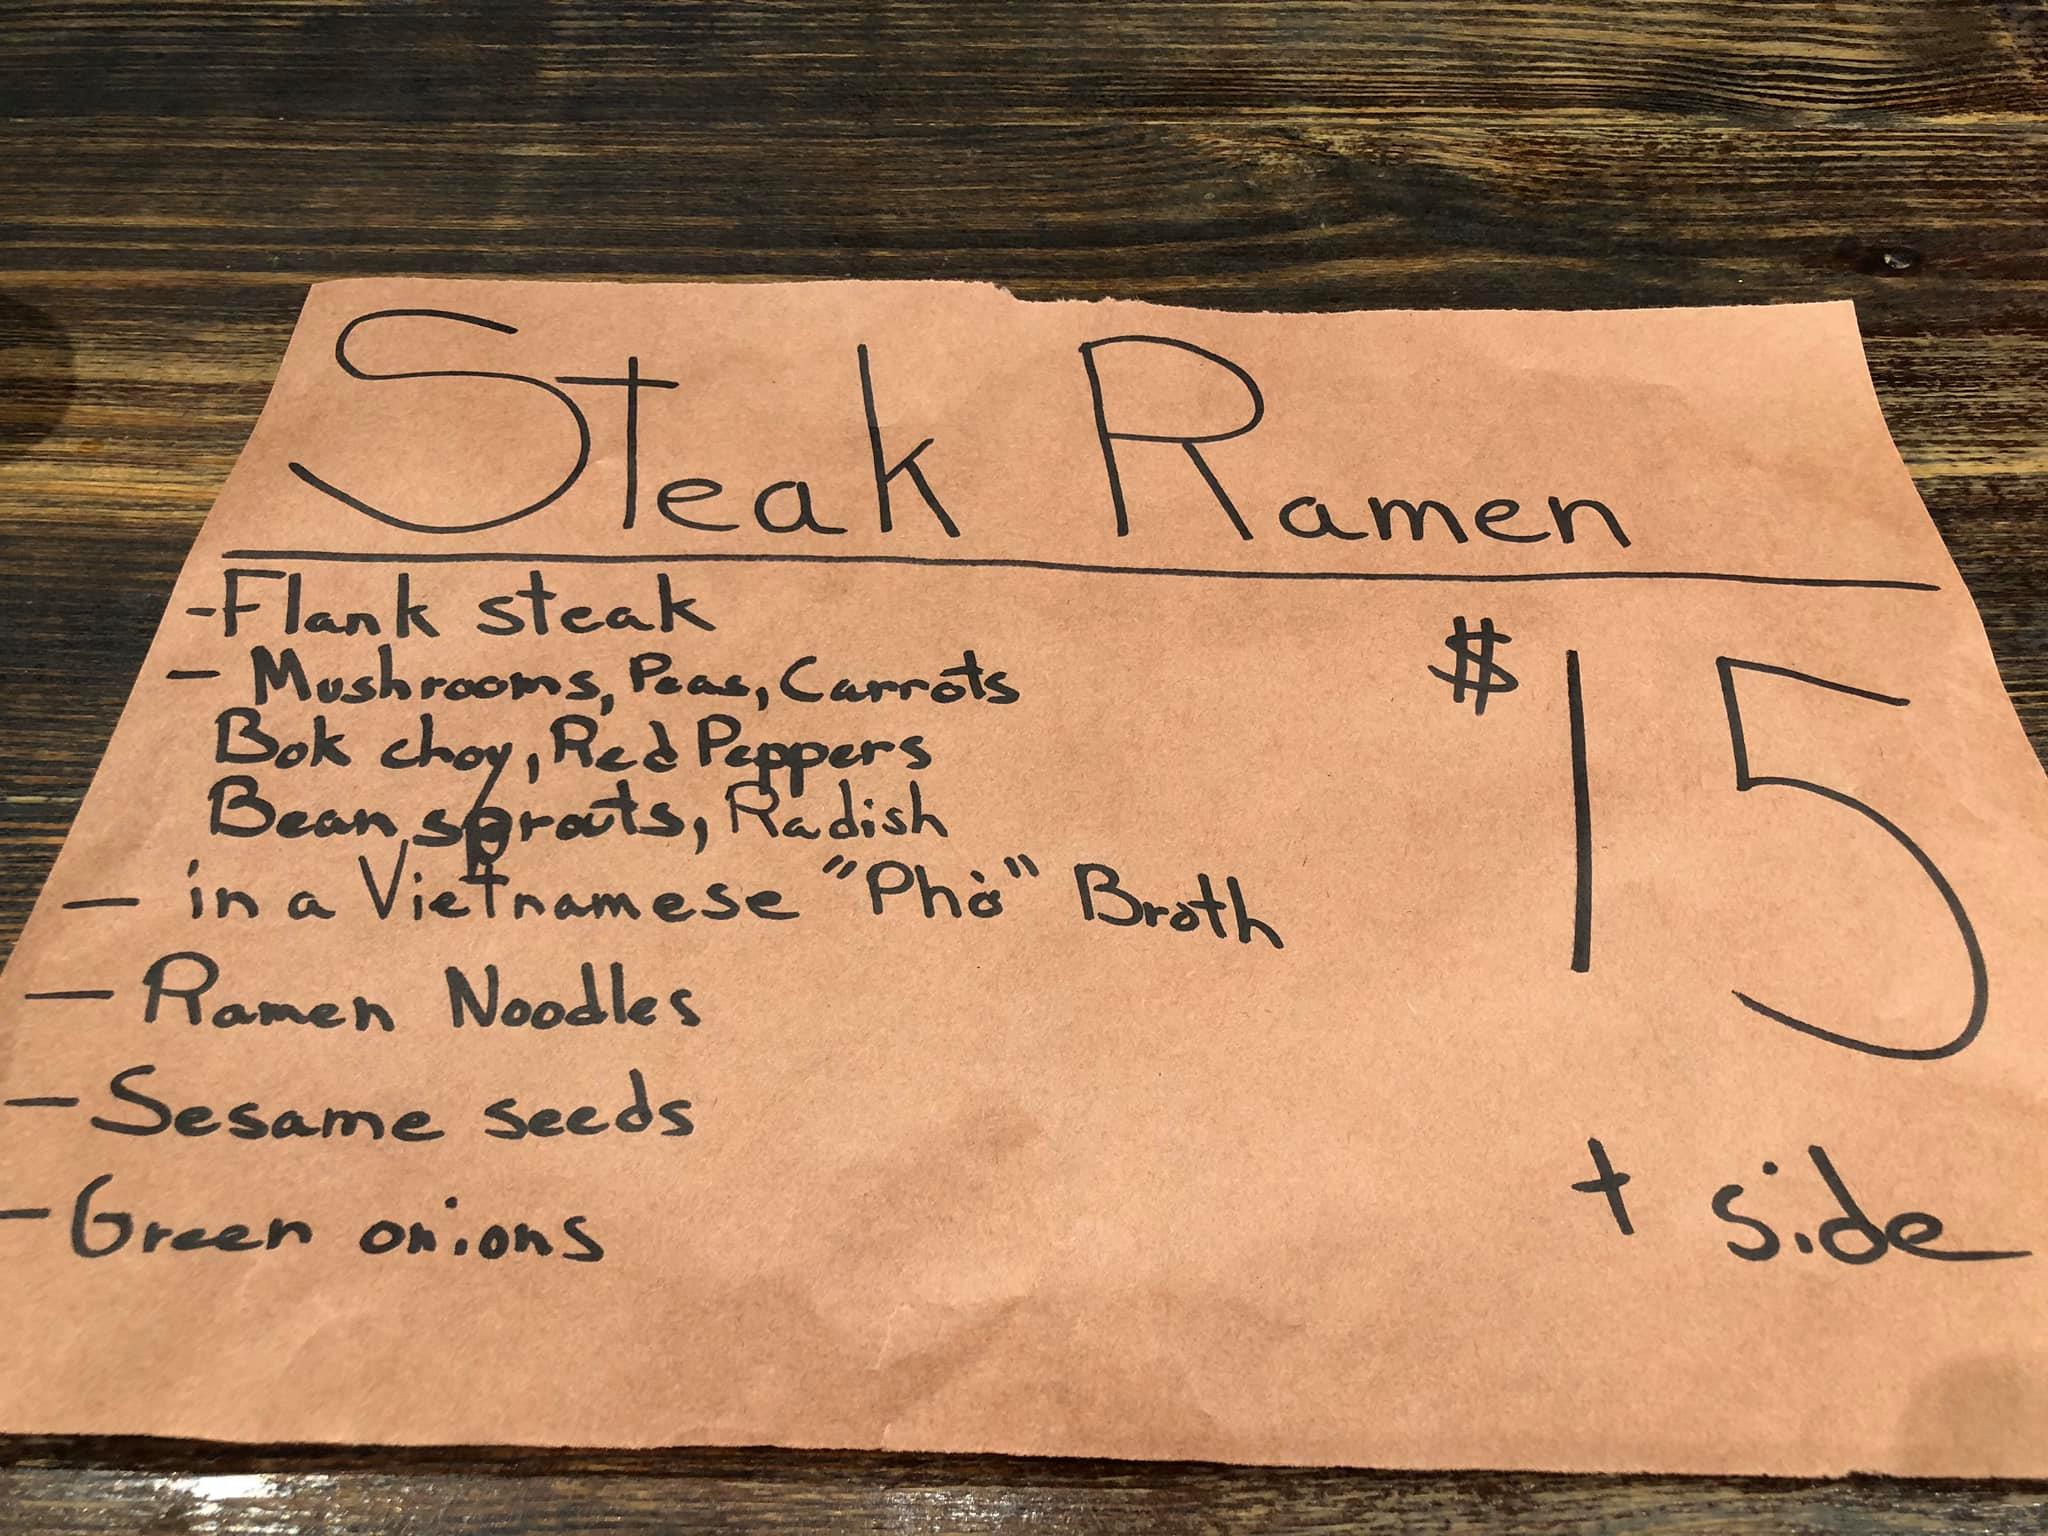 Steak Ramen
-Flank steak
- Mushrooms, Peas, Carrots
Bok choy, Red Peppers
Bean sprouts, Radish
- in a Vietnamese "Phở" Broth
- Ramen Noodles
- Sesame seeds
- Green onions
$15
+ side